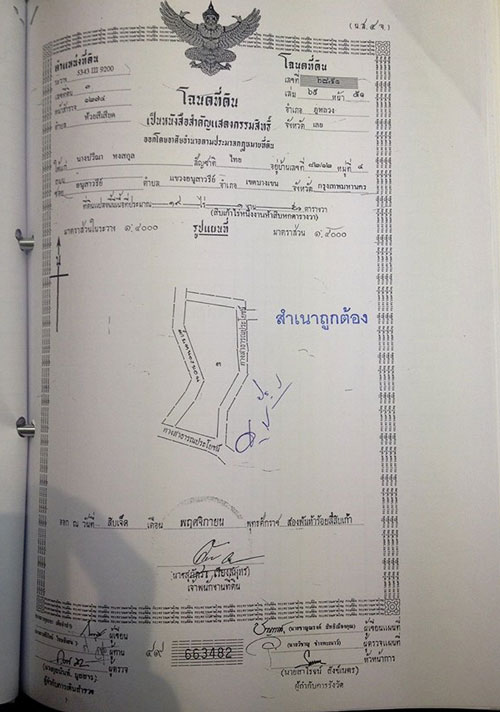 (น.ส.๔ จ.)
ตำแหน่งที่ดิน
ระวาง 5343 III 9200
เลขที่ดิน ๓
หน้าสำรวจ ๑๒๗๔
ตำบล ห้วยสีเสียด
โฉนดที่ดิน
เลขที่ ๒๘๕๑
เล่ม ๖๕ หน้า ๕๑
อำเภอ ภูหลวง
จังหวัด เลย
โฉนดที่ดิน
เป็นหนังสือสำคัญแสดงกรรมสิทธิ์
ออกโดยอาศัยอำนาจตามประมวลกฎหมายที่ดิน
ให้แก่ นางปวีณา หงสกุล สัญชาติ ไทย อยู่บ้านเลขที่ หมู่ที่ ๔
ถนน อนุสาวรีย์ ตำบล แขวงอนุสาวรีย์ อำเภอ เขตบางเขน จังหวัด กรุงเทพมหานคร
ที่ดินแปลงนี้มีเนื้อที่ประมาณ ๑๙ ไร่ งาน ตารางวา
(สิบเก้าไร่หนึ่งงานห้าสิบหกตารางวา)
มาตราส่วนในระวาง ๑:๔๐๐๐ รูปแผนที่ มาตราส่วน ๑:๔๐๐๐
สำเนาถูกต้อง
ทางสาธารณประโยชน์
๓
ทางสาธารณประโยชน์
ออก ณ วันที่ สิบเจ็ด เดือน พฤศจิกายน พุทธศักราช สองพันห้าร้อยสี่สิบเก้า
เจ้าพนักงานที่ดิน
ผู้เขียน
ผู้ทาน
ผู้ตรวจ
๔๙ 663482
ผู้เขียนแผนที่
ผู้ตรวจแผนที่
หัวหน้าการ
ผู้กำกับการรังวัด